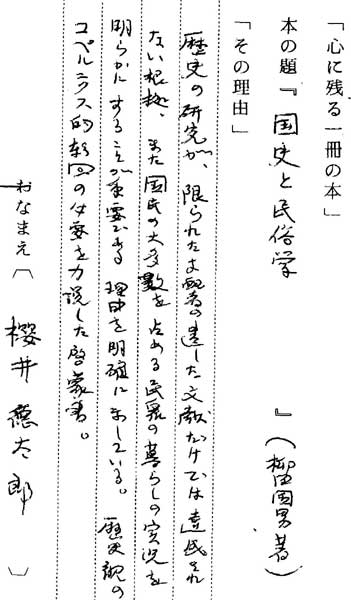 「心に残る一冊の本」
本の題『国史と民俗学』(柳田国男著)
「その理由」
歴史の研究が、限られた支配者の遺した文献だけでは達成され
ない根拠、また国民の大多数を占める民衆の暮らしの実況を
明らかにすることが重要である理由を明確に示している。歴史観の
コペルニクス的転回の必要を力説した啓蒙書。
おなまえ〔櫻井徳太郎〕